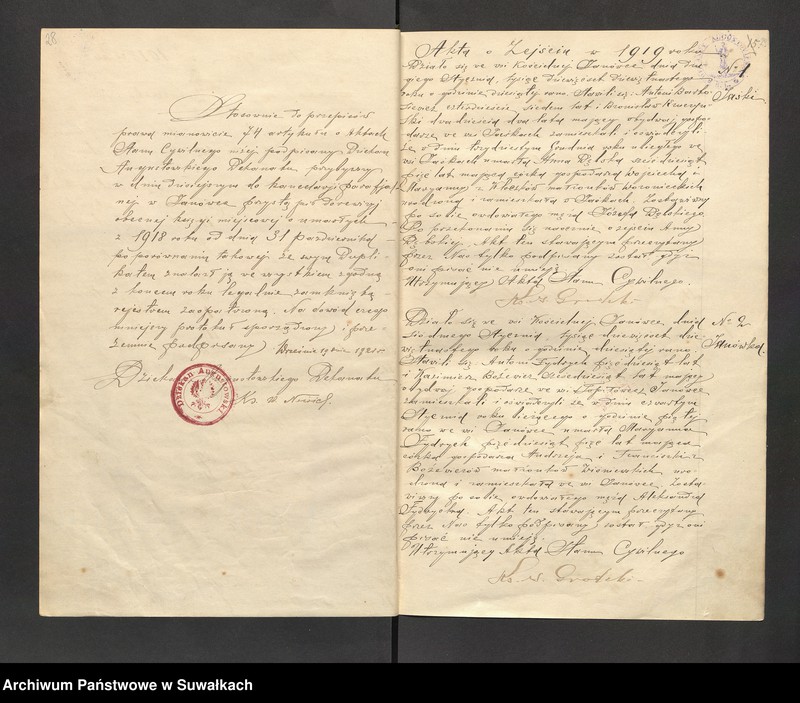 28
Stosownie do przepisów
prawa mianowicie 74 artykułu o Aktach
Stanu Cywilnego niżej podpisany Dziekan
Augustowskiego Dekanatu przybywszy
w dniu dzisiejszym do kancelaryi parafjal
nej w Janówce przystąpił do rewizyi
obecnej księgi miejscowej o umarłych
z 1918 roku od dnia 31 Października
po porównaniu takowej ze wym Dupli-
katem znalazł ją we wszystkiem zgodną
z końcem roku legalnie zamkniętą
rejestrem zaopatrzoną. Na dowód czego
niniejszy protokuł sporządzony i prze-
zemnie podpisany
Dziekan Augustowskiego Dekanatu
Ks.
Dziekan Augustowski
Akta o Zejściu w 1919 roku
Działo się we wsi Kościelnej Janówce dnia dru-
giego Stycznia, tysiąc dziewięćset dziewiętnastego
roku o godzinie dziesiątej rano. Stawili się: Antoni
czterdzieście siedem lat i Bronisław
dwadzieścia dwa lata mający obydwaj gospo-
darze we wsi Jaśkach zamieszkali i oświadczyli
że w dniu trzydziestym Grudnia roku ubiegłego we
wsi Jaśkach umarła Anna sześćdziesiąt
pięć lat mająca córka gospodarza Wojciecha i
Maryanny z małżonków
urodzona i zamieszkała w Jaśkach. Zostawiwszy
po sobie owdowiałego męża Józefa
Po przekonaniu się naocznie o zejściu Anny
Akt ten stawającym przeczytany
przez Nas tylko podpisany został gdyż
oni pisać nie umieją
Utrzymujący Akta Stanu Cywilnego.
Ks. W. Grodzki.
№ 1
Jaśki
Działo się we wsi Kościelnej Janówce dnia
siódmego Stycznia, tysiąc dziewięćset dzie-
więtnastego roku o godzinie dziesiątej rano.
Stawili się: Antoni Fydrych pięćdziesiąt lat
i Kazimierz Bożewicz dziewiędziesiąt lat mający
obydwaj gospodarze we wsi Janówce
zamieszkali i oświadczyli że w dniu czwartym
Stycznia roku bieżącego o godzinie piątej
rano we wsi Janówce umarła Maryanna
Fydrych pięćdziesiąt pięć lat mająca
córka gospodarza Andrzeja i Franciszki z
Bożewiczów małżonków Wiśniewskich uro-
dzona i zamieszkała we wsi Janówce. Zosta-
wiwszy po sobie owdowiałego męża Aleksandra
Fydrycha. Akt ten stawającym przeczytany
przez Nas tylko podpisany został gdyż oni
pisać nie umieją.
Utrzymujący Akta Stanu Cywilnego
Ks. W. Grodzki.
№ 2
Janówka.
Archiwum Państwowe w Suwałkach